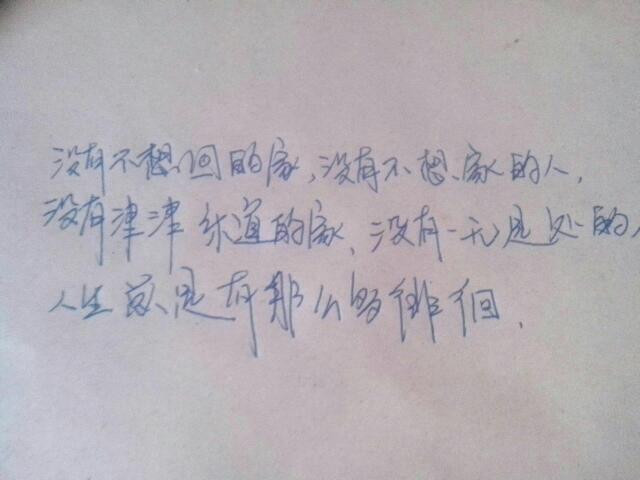 没有不想回的家,没有不想家的人,
没有津津乐道的家,没有一无是处的人
人生总是有那么多徘徊.